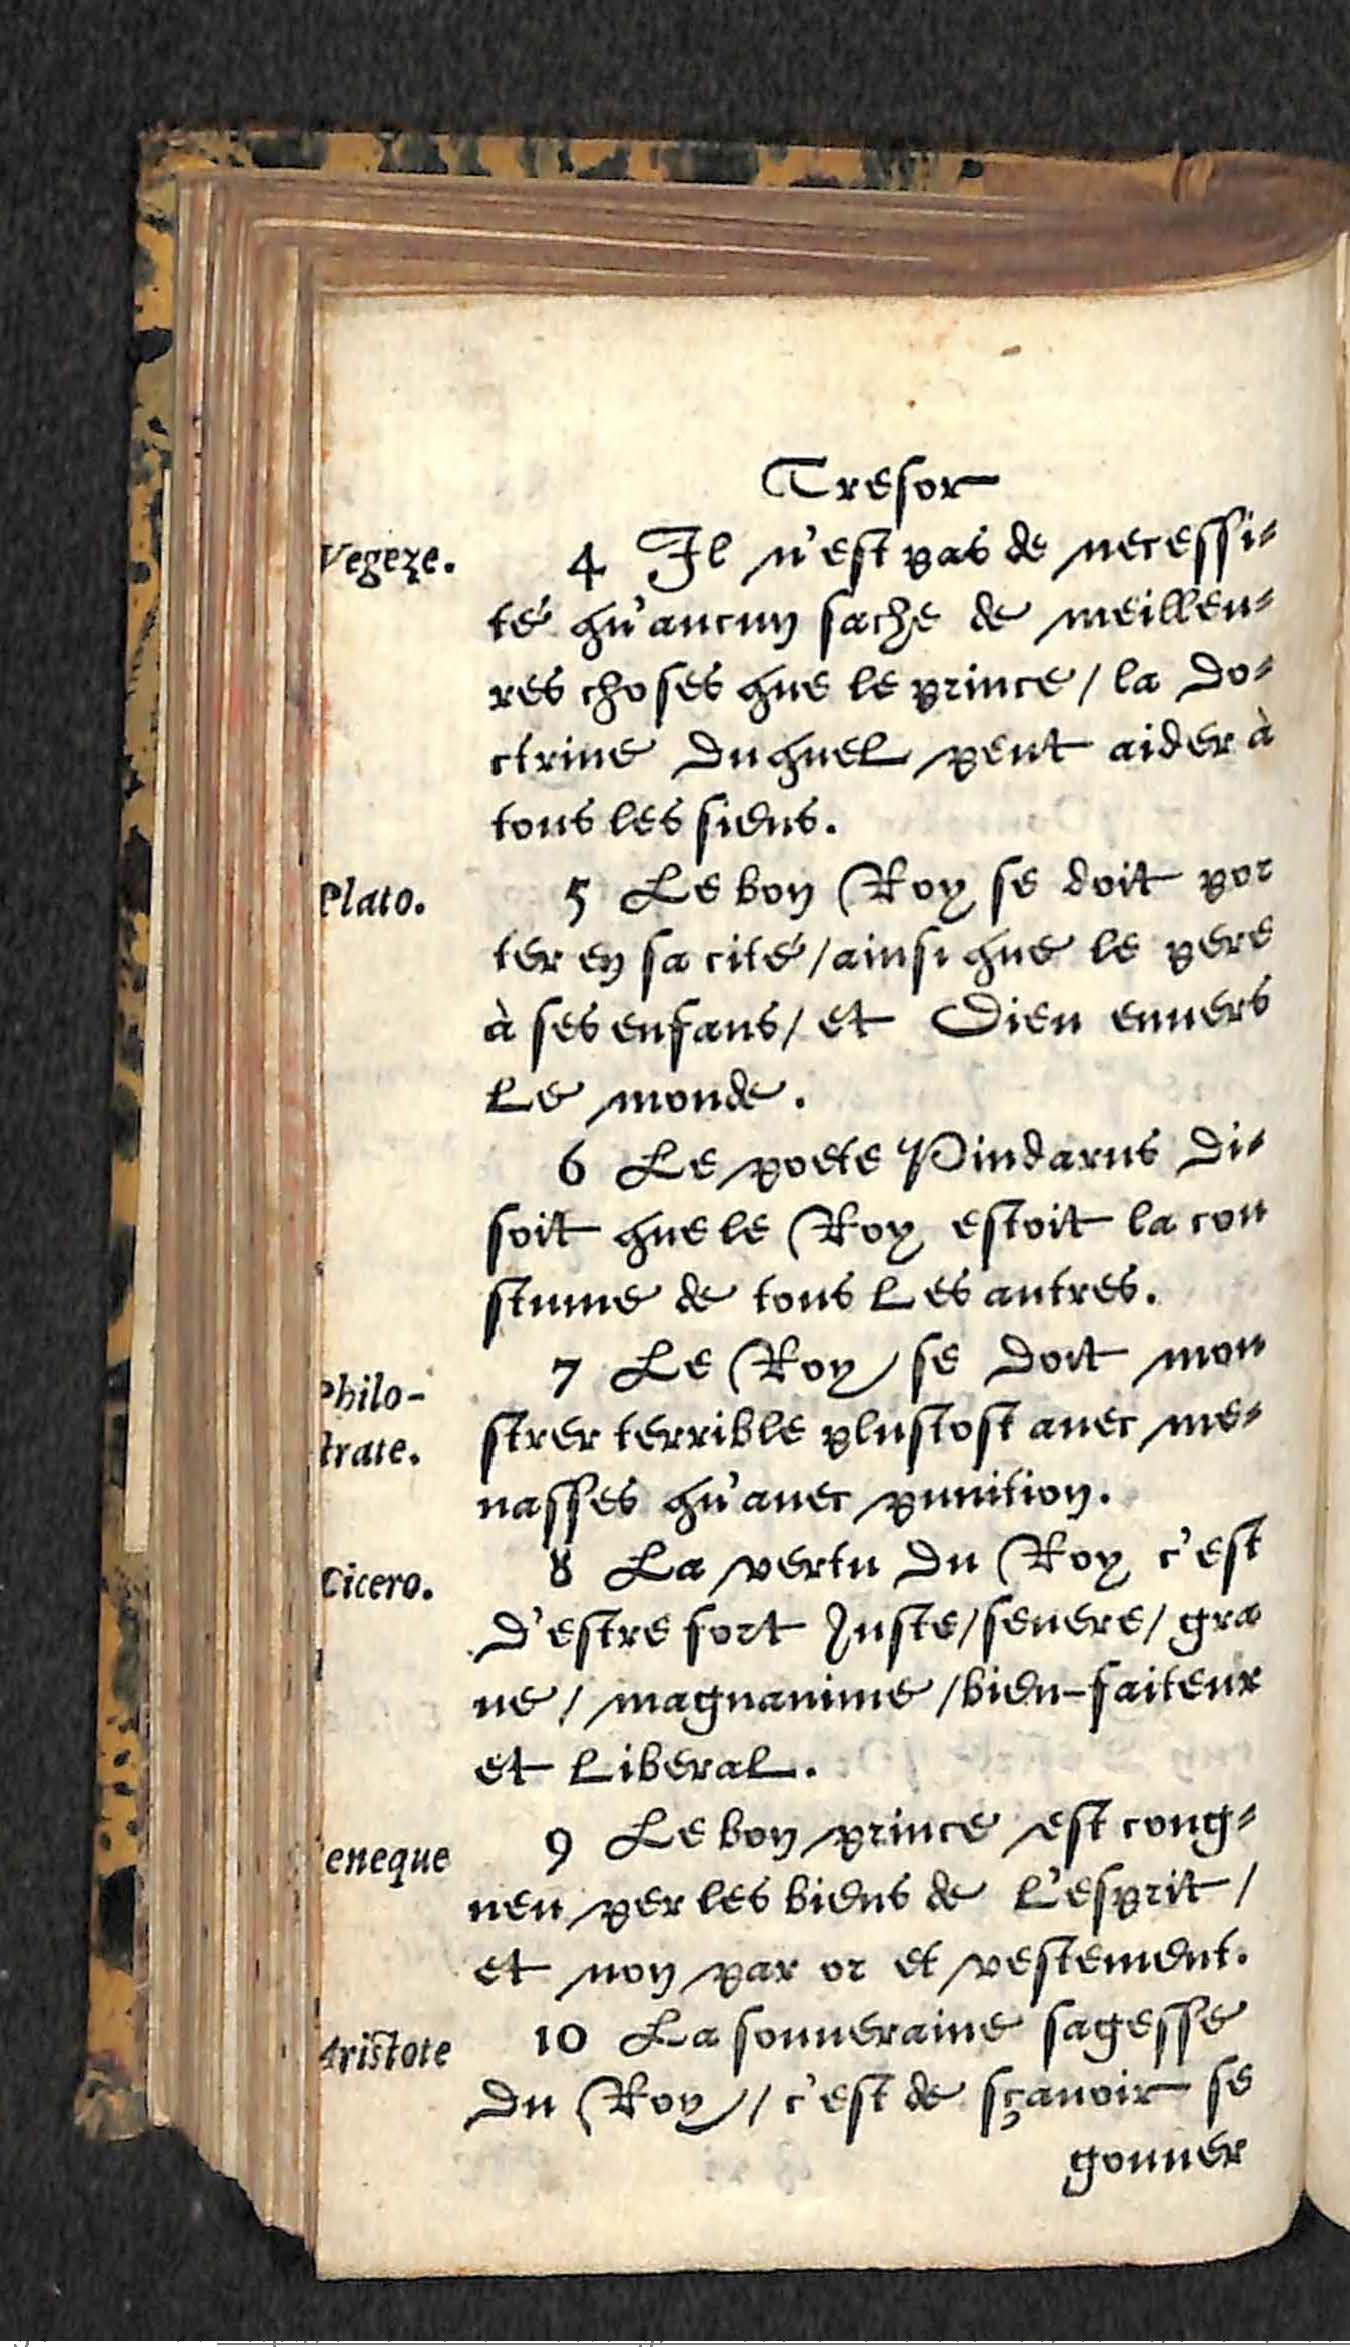 Tresor
Vegeze.
4 Il n'est pas de necessi-
té qu'aucun sache de meilleu-
res choses que le prince/ la do-
ctrine duquel peut aider à
tous les siens.
Plato.
5 Le bon Roy se doit por
ter en sa cité/ ainsi que le pere
à ses enfans/ et Dieu enuers
le monde.
6 Le poete Pindarus di-
soit que le Roy estoit la cou
stume de tous les autres.
Philo-
strate.
7 Le Roy se doit mon
strer terrible plustost auec me-
nasses qu'auec punition.
Cicero.
8 La vertu du Roy c'est
d'estre fort Iuste/ seuere/ gra
ue/ magnanime/ bien-faiteur
et liberal.
eneque
9 Le bon prince est cong-
neu per les biens de l'esprit/
et non par or et vestement.
Aristote
10 La souueraine sagesse
du Roy/ c'est de sçauoir se
gouuer